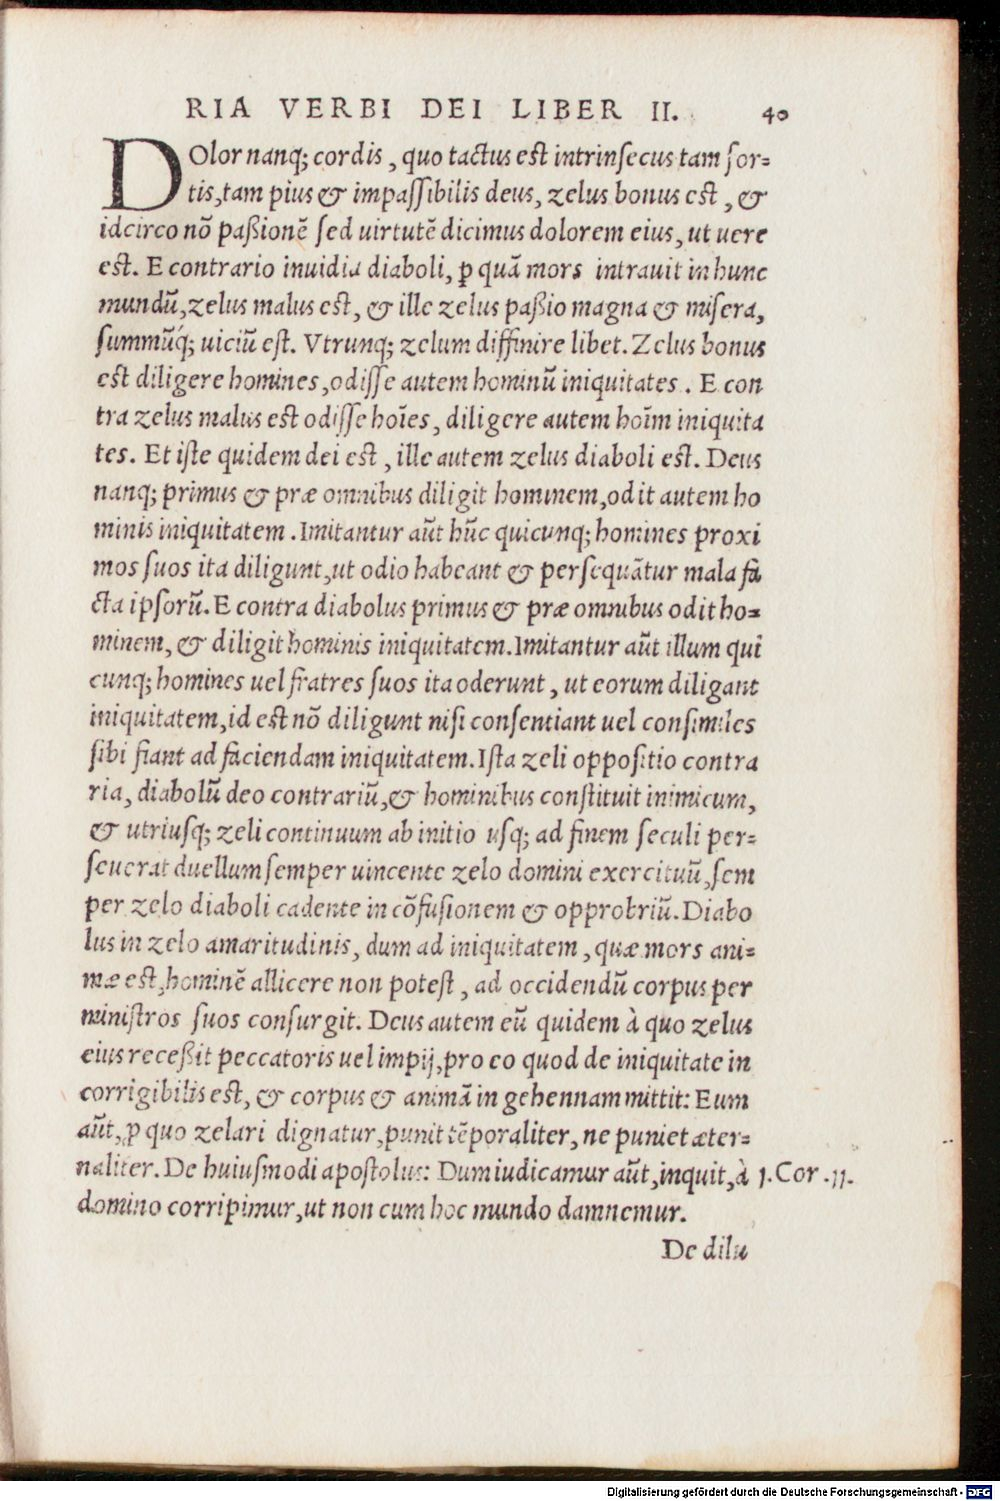 RIA VERBI DEI LIBER II. 40
DOlor nanq; cordis, quo tactus est intrinsecus tam for=
tis, tam pius & impassibilis deus, zelus bonus est, &
idcirco nõ paßionẽ sed uirtutẽ dicimus dolorem eius, ut uere
est. E contrario inuidia diaboli, ꝑ quã mors intrauit in hunc
mundũ, zelus malus est, & ille zelus paßio magna & misera,
summũq́; uiciũ est. Vtrunq; zelum diffinire libet. Zelus bonus
est diligere homines, odisse autem hominũ iniquitates. E con
tra zelus malus est odisse hoĩes, diligere autem hoĩm iniquita
tes. Et iste quidem dei est, ille autem zelus diaboli est. Deus
nanq; primus & præ omnibus diligit hominem, odit autem ho
minis iniquitatem. Imitantur aũt hũc quicunq; homines proxi
mos suos ita diligunt, ut odio habeant & persequãtur mala fa
cta ipsorũ. E contra diabolus primus & præ omnibus odit ho=
minem, & diligit hominis iniquitatem. Imitantur aũt illum qui
cunq; homines uel fratres suos ita oderunt, ut eorum diligant
iniquitatem, id est nõ diligunt nisi consentiant uel consimiles
sibi fiant ad faciendam iniquitatem. Ista zeli oppositio contra
ria, diabolũ deo contrariũ, & hominibus constituit inimicum,
& utriusq; zeli continuum ab initio usq; ad finem seculi per=
seuerat duellum semper uincente zelo domini exercituũ, sem
per zelo diaboli cadente in cõfusionem & opprobriũ. Diabo
lus in zelo amaritudinis, dum ad iniquitatem, quæ mors ani=
mæ est, hominẽ allicere non potest, ad occidendũ corpus per
ministros suos consurgit. Deus autem eũ quidem à quo zelus
eius receßit peccatoris uel impij, pro eo quod de iniquitate in
corrigibilis est, & corpus & animã in gehennam mittit: Eum
aũt, ꝓ quo zelari dignatur, punit tẽporaliter, ne puniet æter=
naliter. De huiusmodi apostolus: Dum iudicamur aũt, inquit, à 1. Cor. 11.
domino corripimur, ut non cum hoc mundo damnemur.
De dilu
Digitalisierung gefördert durch die Deutsche Forschungsgemeinschaft - DFG